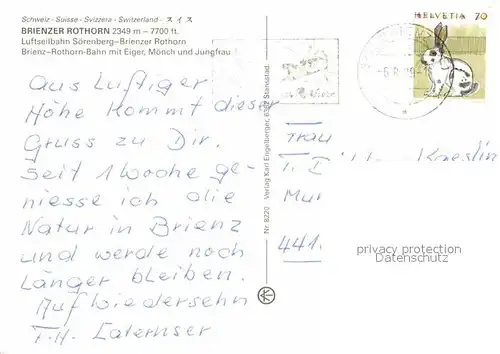 Schweiz · Suisse · Svizzera · Switzerland · スイス
BRIENZER ROTHORN 2349 m – 7700 ft.
Luftseilbahn Sörenberg–Brienzer Rothorn
Brienz–Rothorn-Bahn mit Eiger, Mönch und Jungfrau
HELVETIA 70
Aus Luftiger
Höhe kommt dieser
Gruss zu Dir.
Seit 1 Woche ge-
niesse ich die
Natur in Brienz
und werde noch
Länger bleiben.
Auf Wiedersehn
T.H. Laternser
Nr. 8220 Verlag Karl Engelberger, Stansstad.
Frau
Kaeslin
Mur
441
privacy protection
Datenschutz